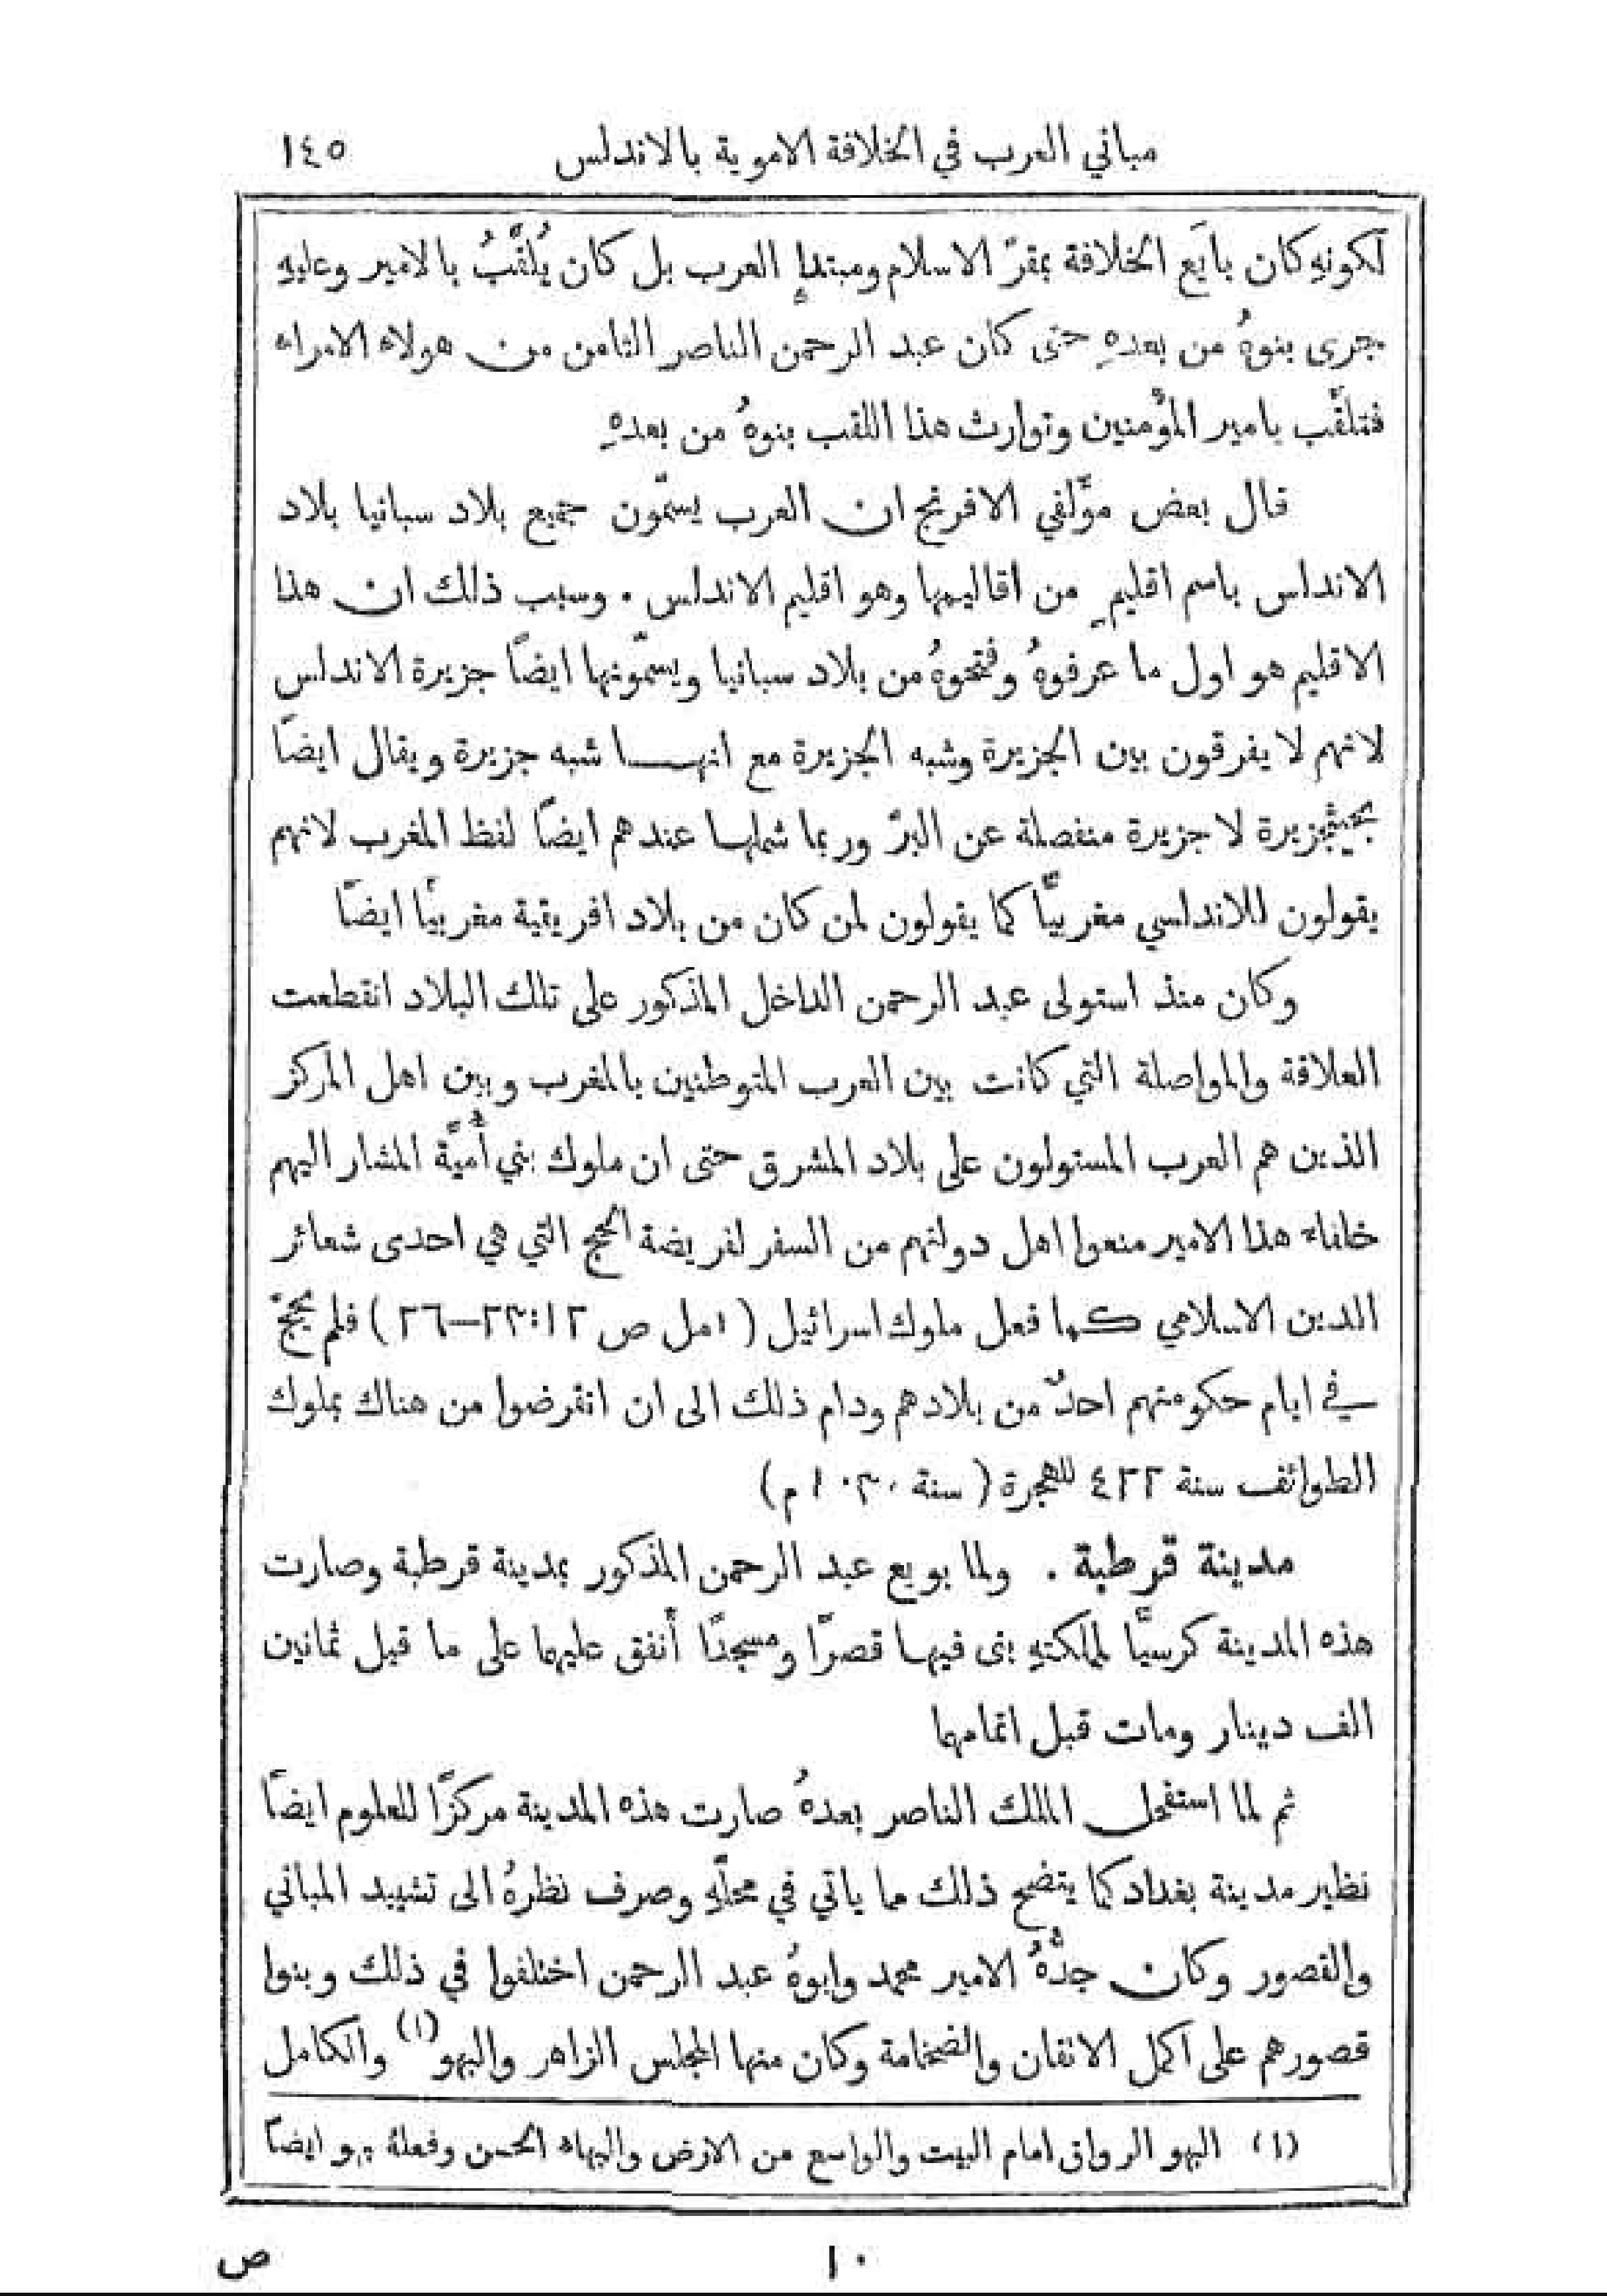 مباني العرب في الخلافة الاموية بالاندلس ١٤٥
لكونهِ كان بايَع الخلافة بمقرّ الاسلام ومبتدإِ العرب بل كان يُلقَّبُ بالامير وعليهِ
جرى بنوهُ من بعدهِ حتى كان عبد الرحمن الناصر الثامن من هولاء الامراء
فتلقَّب بامير المؤْمنين وتوارث هذا اللقب بنوهُ من بعدهِ
قال بعض مؤَلفي الافرنج ان العرب يسمّون جميع بلاد سبانيا بلاد
الاندلس باسم اقليمٍ من اقاليمها وهو اقليم الاندلس . وسبب ذلك ان هذا
الاقليم هو اول ما عرفوهُ وفتحوهُ من بلاد سبانيا ويسمّونها ايضاً جزيرة الاندلس
لانهم لا يفرقون بين الجزيرة وشبه الجزيرة مع انهـا شبه جزيرة ويقال ايضاً
بحيثجزيرة لا جزيرة منفصلة عن البرّ وربما شملها عندهم ايضاً لفظ المغرب لانهم
يقولون للاندلسي مغربيّاً كما يقولون لمن كان من بلاد افريقية مغربيّاً ايضاً
وكان منذ استولى عبد الرحمن الداخل المذكور على تلك البلاد انقطعت
العلاقة والمواصلة التي كانت بين العرب المتوطنين بالمغرب وبين اهل المركز
الذين هم العرب المستولون على بلاد المشرق حتى ان ملوك بني أُميَّة المشار اليهم
خلفاء هذا الامير منعوا اهل دولتهم من السفر لفريضة الحج التي هي احدى شعائر
الدين الاسلامي كما فعل ملوك اسرائيل ( ١مل ص ١٢:‏٢٣—٢٦ ) فلم يحجج
في ايام حكومتهم احدٌ من بلادهم ودام ذلك الى ان انقرضوا من هناك بملوك
الطوائف سنة ٤٢٢ للهجرة ( سنة ١٠٣٠م )
مدينة قرطبة . ولما بويع عبد الرحمن المذكور بمدينة قرطبة وصارت
هذه المدينة كرسيّاً لمملكتهِ بنى فيها قصرًا ومسجدًا أنفق عليهما على ما قيل ثمانين
الف دينار ومات قبل اتمامهما
ثم لما استفحل الملك الناصر بعدهُ صارت هذه المدينة مركزًا للعلوم ايضاً
نظير مدينة بغداد كما يتضح ذلك مما ياتي في محلّهِ وصرف نظرهُ الى تشييد المباني
والقصور وكان جدُّهُ الامير محمد وابوهُ عبد الرحمن اختلفوا في ذلك وبنوا
قصورهم على اكمل الاتقان والضخامة وكان منها المجلس الزاهر والبهو(١) والكامل
(١) البهو الرواق امام البيت والواسع من الارض والبهاء الحسن وفعلهُ بهو ايضاً
١٠ ص